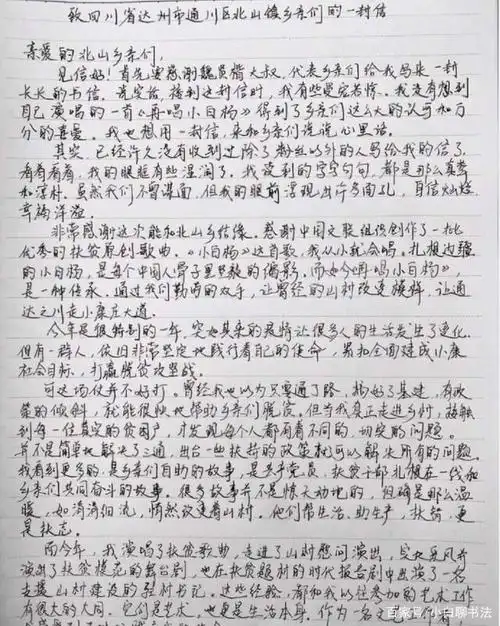 致四川省达州市通川区北山镇乡亲们的一封信
亲爱的北山乡亲们，
见信好！首先要感谢魏员楷大叔，代表乡亲们给我写来一封
长长的书信。说实话，接到这封信时，我有些受宠若惊。我没有想到
自己演唱的一首《再唱小白杨》得到了乡亲们这么大的认可和万
分的喜爱。我也想用一封信，来和乡亲们说说心里话。
其实，已经许久没有收到过除了粉丝以外的人写给我的信了。
看着看着，我的眼眶有些湿润了。我读到的字字句句，都是那么真挚
和淳朴。虽然我们不曾谋面，但我的眼前浮现出许多面孔，自信灿烂，
幸福洋溢。
非常感谢这次能和北山乡结缘。感谢中国文联组织创作了一批
优秀的扶贫原创歌曲。《小白杨》这首歌，我从小就会唱。扎根边疆
的小白杨，是每个中国人骨子里坚毅的偶影。而如今再唱《小白杨》，
是一种传承。通过我们勤劳的双手，让曾经的山村改变模样，让通
达之川走小康庄大道。
今年是很特别的一年，突如其来的疫情让很多人的生活发生了变化。
但有一群人，依旧非常坚定地践行着自己的使命，员和全面建成小康
社会目标，打赢脱贫攻坚战。
可这场仗并不好打。曾经我也以为只要通了路，搞好了基建，有政
策的倾斜，就能很快地帮助乡亲们脱贫。但当我真正走进乡村，接触
到每一位真实的贫困户，才发现每个人都有着不同的，切实的问题。
并不是简单地解决了三通，出台一些扶持的政策就可以解决所有的问题。
我看到更多的，是乡亲们自助的故事，是共产党员，扶贫干部扎根在一线和
乡亲们共同奋斗的故事。很多故事并不是惊天动地的，但确是那么温
暖，如涓涓细流，悄然改变着山村。他们帮生活，助生产，扶智，更
是扶志。
而今年，我演唱了扶贫歌曲，走进了山村慰问演出，参加
演出了扶贫模范的舞台剧，也在扶贫题材的时代报告剧中出演了一名
支援山村建设的驻村书记。这些经验，都和我以往参加的艺术工作
有很大的不同。它们是艺术，也更是生活本身。作为一名文
百家号/小白聊书法